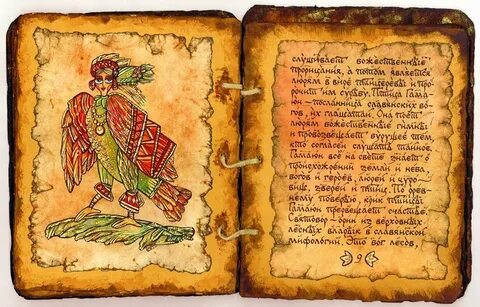 слушивает божественные
прорицания, а потом является
людям в виде птицедевы и про-
рочит им судьбу. Птица Гама-
юн – посланница славянских бо-
гов, их глашатай. Она поёт
людям божественные гимны
и провозвещает будущее тем,
кто согласен слушать тайное.
Гамаюн всё на свете знает о
происхождении земли и неба,
богов и героев, людей и чудо-
вищ, зверей и птиц. По древ-
нему поверью, крик птицы
Гамаюн предвещает счастье.
Святобор – один из верховных
лесных владык в славянской
мифологии. Это бог лесов,
9